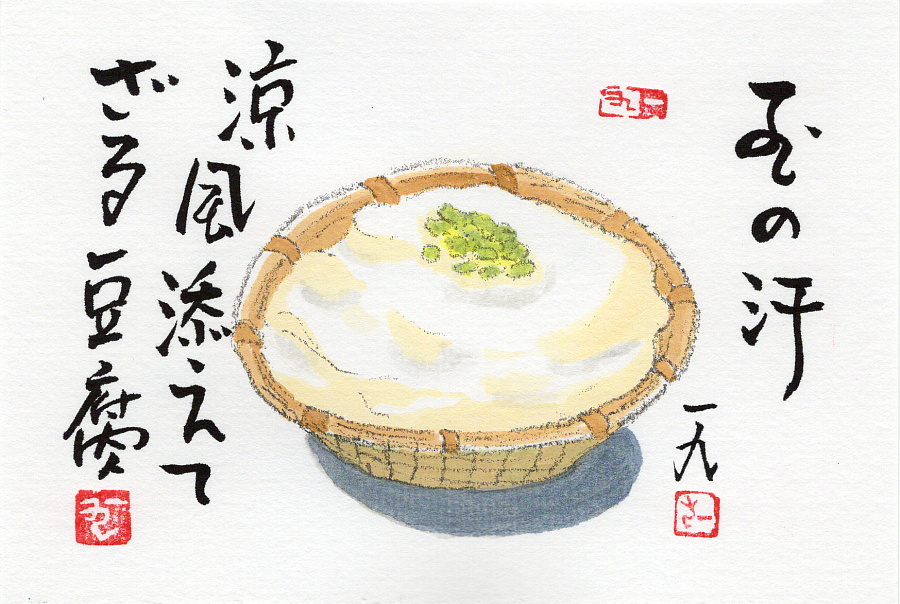 玉の汗
一九
涼風添えて
ざる豆腐